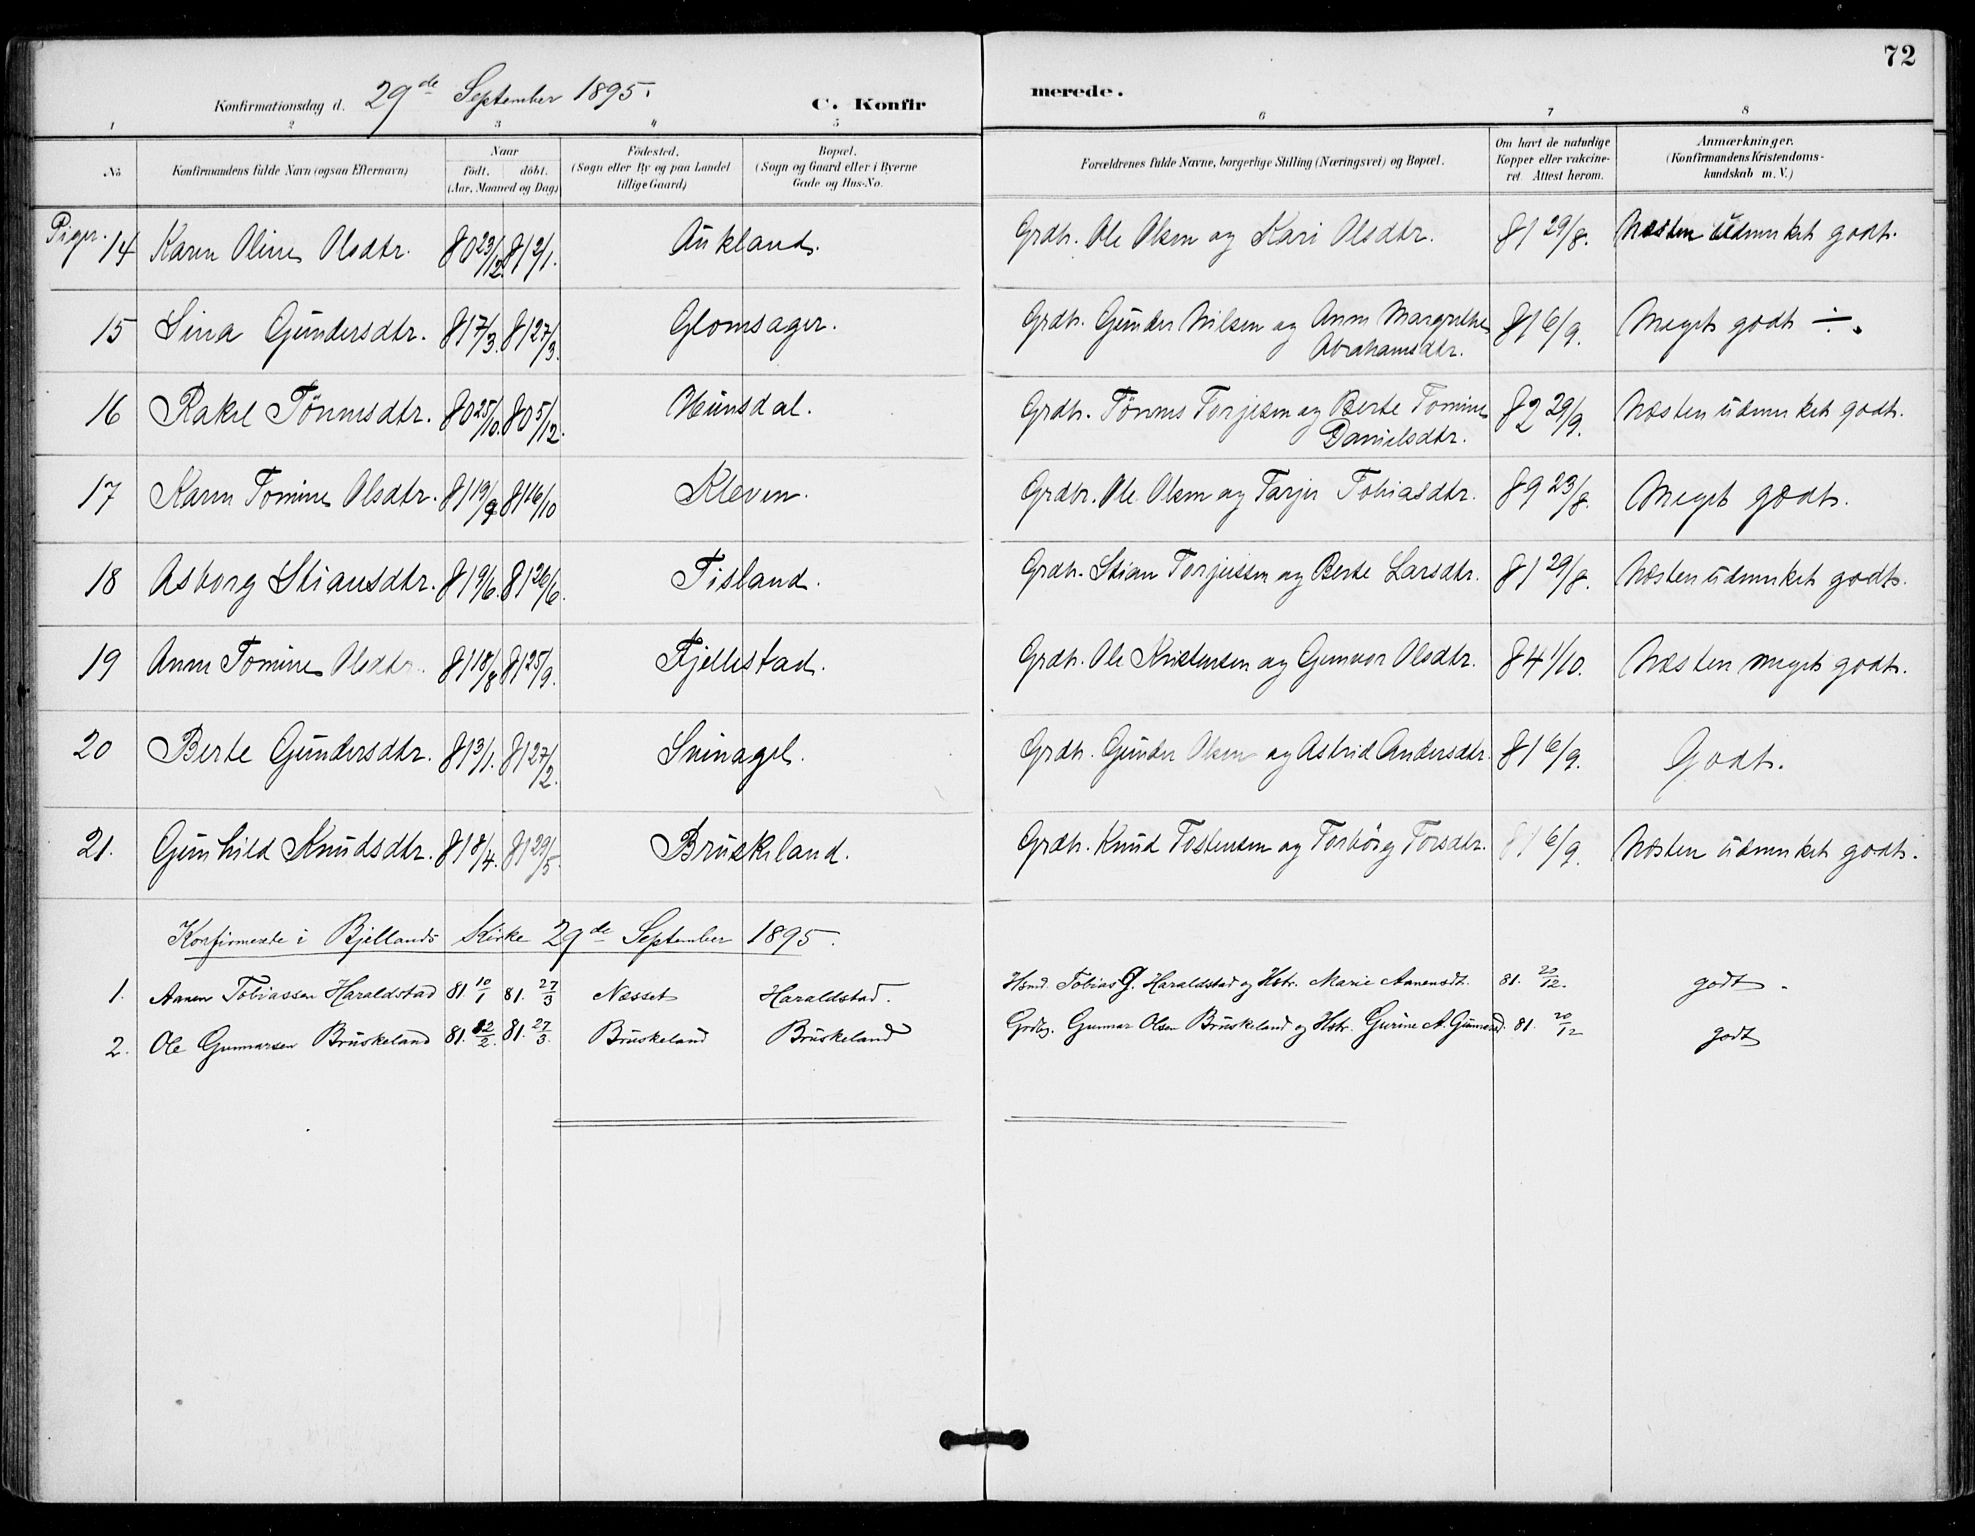 72
Konfirmationsdag d. 29de September 1895. C. Konfir merede.
1 2 3 4 5 6 7 8
No. Konfirmandens fulde Navn (ogsaa Efternavn) Naar født. døbt. (Aar, Maaned og Dag) Fødested. (Sogn eller By og paa Landet tillige Gaard) Bopæl. (Sogn og Gaard eller i Byerne Gade og Hus-No. Forældrenes fulde Navne, borgerlige Stilling (Næringsvei) og Bopæl. Om havt de naturlige Kopper eller vakcineret. Attest herom. Anmærkninger. (Konfirmandens Kristendomskundskab m. V.)
Piger.
14 Karen Oline Olsdtr. 80 23/12. 81 2/1. Aukland. Grdbr. Ole Olsen og Kari Olsdtr. 81 29/8. Næsten udmerket godt.
15 Sina Gundersdtr. 81 7/3. 81 27/3. Glomsager. Grdbr. Gunder Nilsen og Anne Margrethe Abrahamsdtr. 81 6/9. Meget godt ÷.
16 Rakel Tönnesdtr. 80 25/10. 80 5/12. Hunsdal. Grdbr. Tönnes Torjesen og Berte Tomine Danielsdtr. 82 29/9. Næsten udmerket godt.
17 Karen Tomine Olsdtr. 81 19/9 81 16/10 Kleven. Grdbr. Ole Olsen og Tarjer Tobiasdtr. 89 23/8. Meget godt.
18 Asborg Stiansdtr. 81 9/6. 81 26/6. Tisland. Grdbr. Stian Torjussen og Berte Larsdtr. 81 29/8. Næsten udmerket godt.
19 Anne Tomine Olsdtr. 81 18/8 81 25/9. Fjellestad. Grdbr. Ole Kristensen og Gunvor Olsdtr. 84 1/10. Næsten meget godt.
20 Berte Gundersdtr. 81 3/1. 81 27/2. Svinagel. Grdbr. Gunder Olsen og Astrid Andersdtr. 81 6/9. Godt.
21. Gunhild Knudsdtr. 81 8/4. 81 29/5. Bruskeland. Grdbr. Knud Tostensen og Torbörg Torsdtr. 81 6/9. Næsten udmerket godt.
Konfirmerte i Bjellands Kirke 29de September 1895.
1. Aanen Tobiassen Haraldstad 81. 10/1 81. 27/3 Næsset Haraldstad. Hsmd. Tobias G. Haraldstad og Hstr. Marie Aanensdt. 81. 20/12. godt.
2. Ole Gunnarsen Bruskeland 81. 2/2. 81. 27/3. Bruskeland Bruskeland Grdbg. Gunnar Olsen Bruskeland og Hstr. Gurine A. 81. 20/12 godt